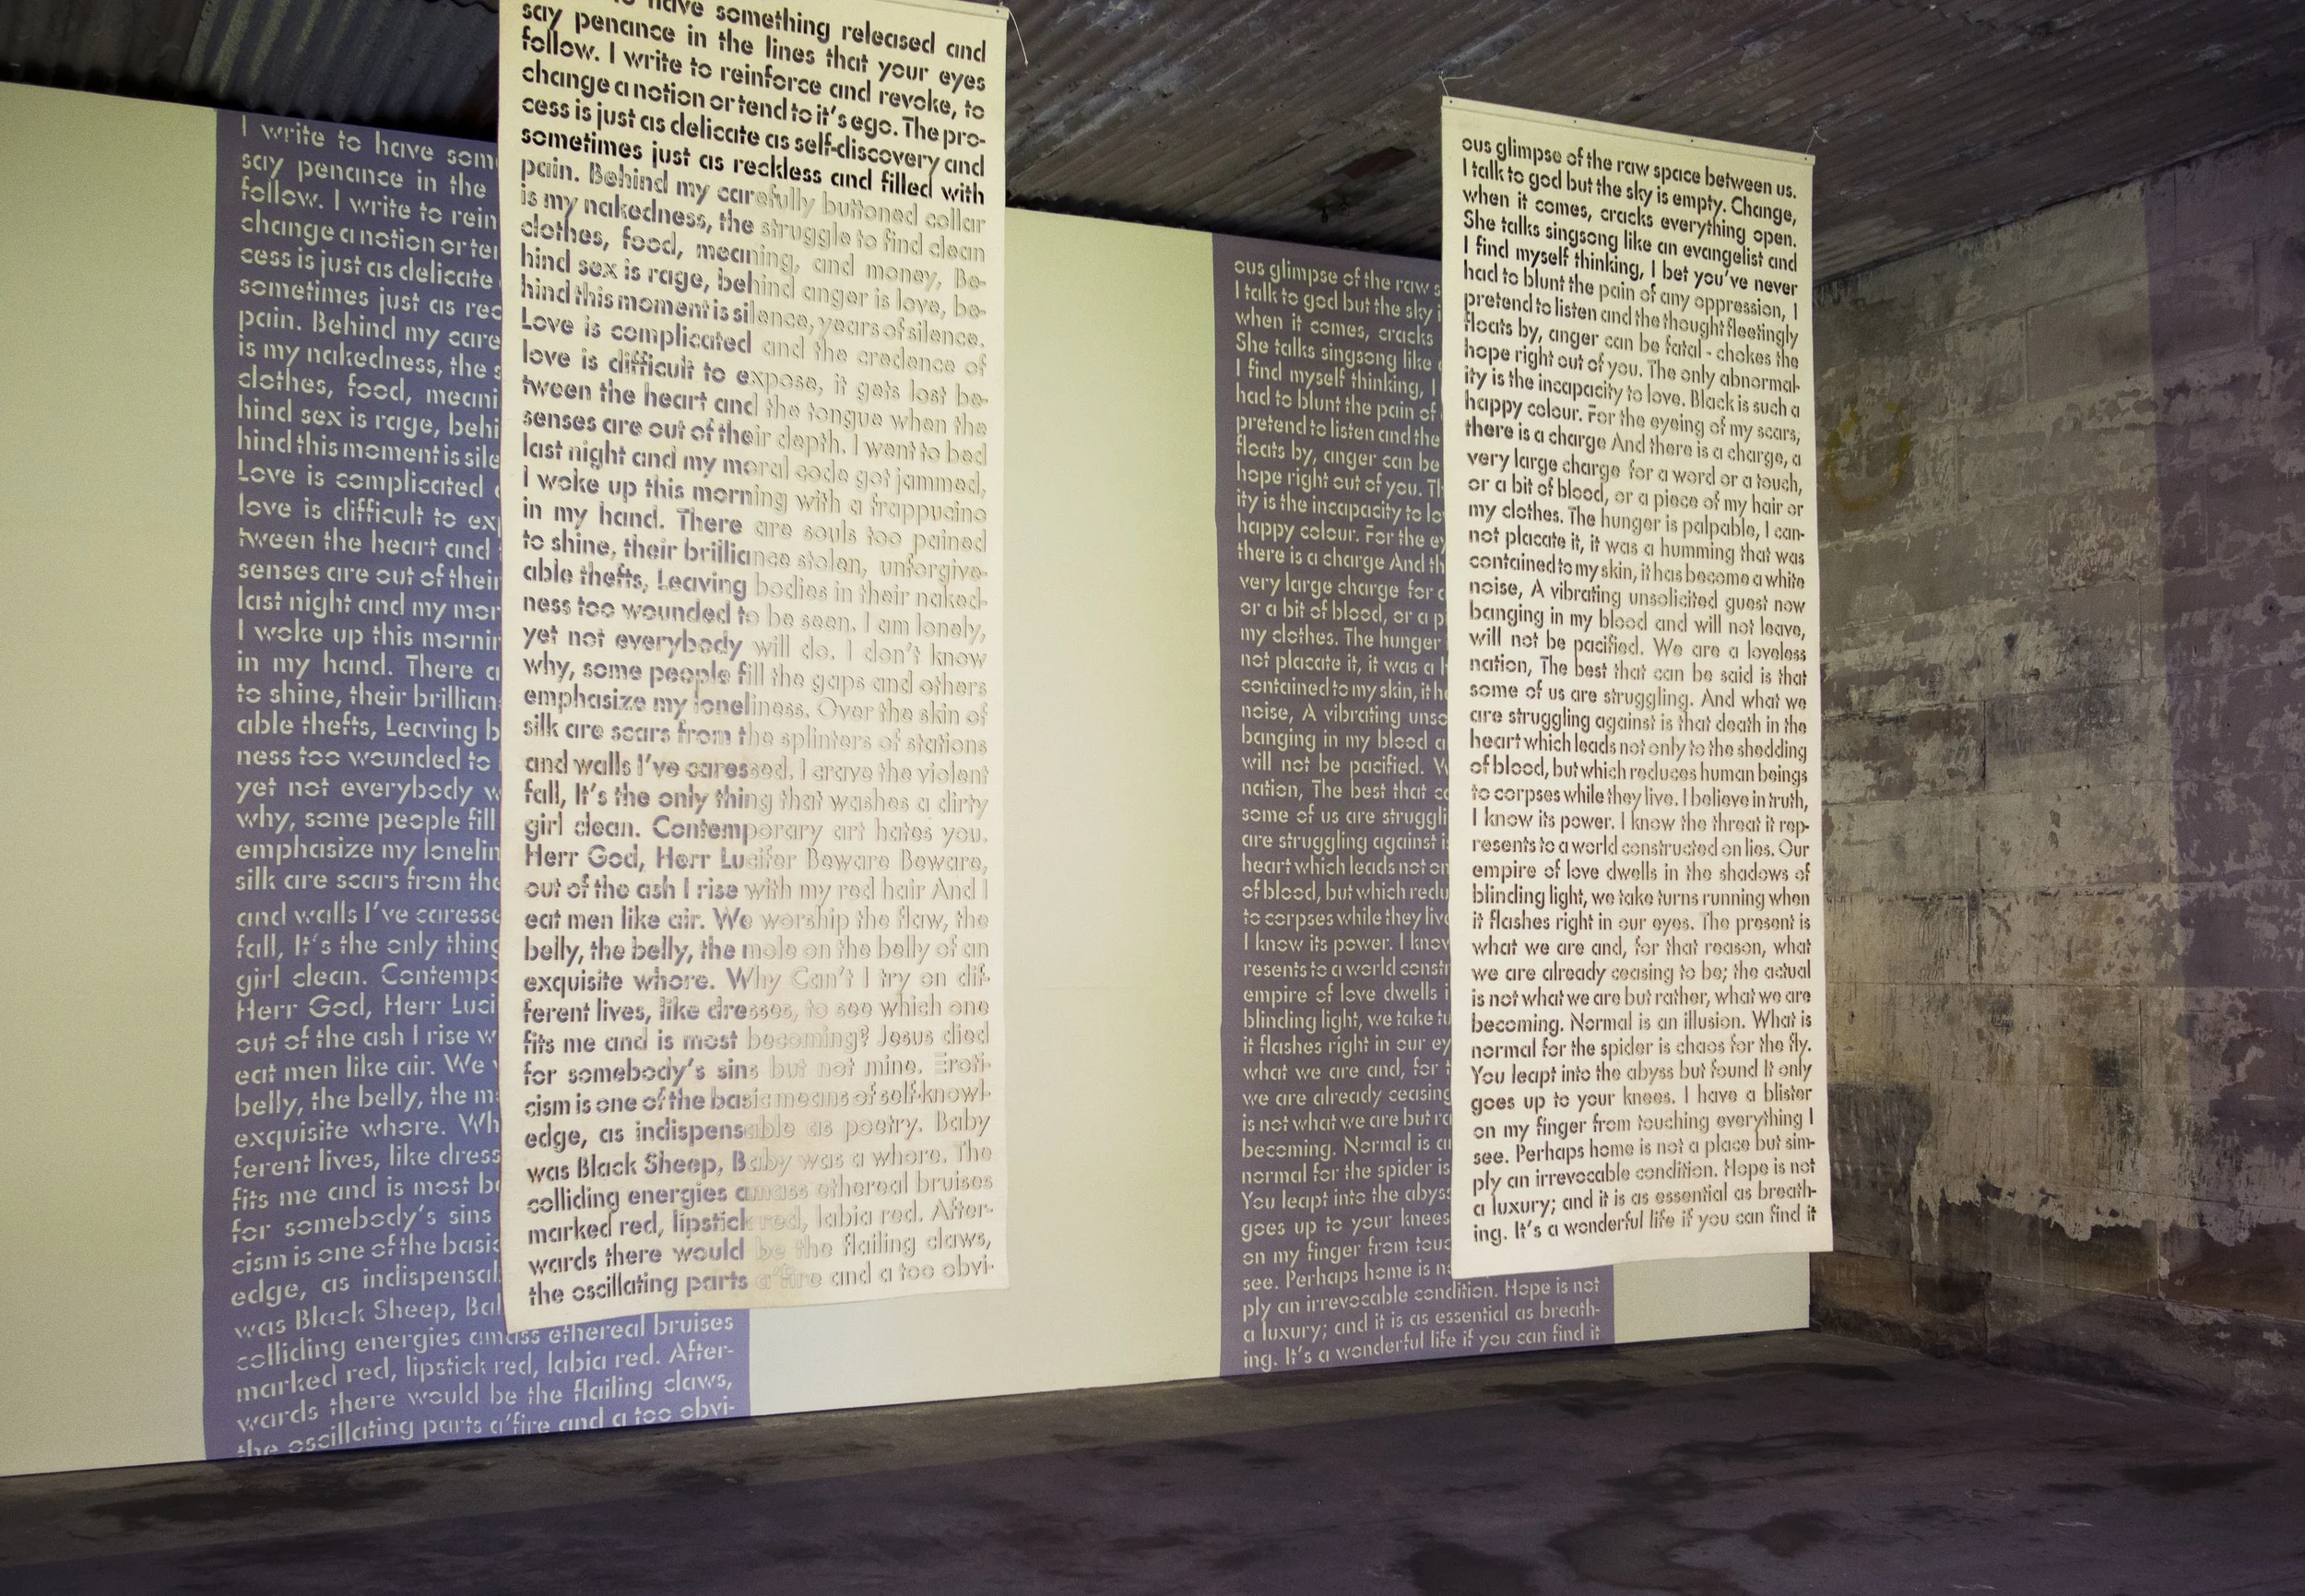 I write to have som
say penance in the
follow. I write to rein
change a notion or ten
cess is just as delicate
sometimes just as rec
pain. Behind my care
is my nakedness, the s
clothes, food, meani
hind sex is rage, behi
hind this moment is sile
Love is complicated
love is difficult to exp
tween the heart and
senses are out of their
last night and my mor
I woke up this mornin
in my hand. There a
to shine, their brillian
able thefts, Leaving b
ness too wounded to
yet not everybody w
why, some people fill
emphasize my lonelin
silk are scars from the
and walls I've caresse
fall, It's the only thing
girl clean. Contempo
Herr God, Herr Luci
out of the ash I rise w
eat men like air. We
belly, the belly, the m
exquisite whore. Wh
ferent lives, like dress
fits me and is most be
for somebody's sins
cism is one of the basic
edge, as indispensal
was Black Sheep, Bal
colliding energies amass ethereal bruises
marked red, lipstick red, labia red. After-
wards there would be the flailing claws,
the oscillating parts a'fire and a too obvi-
to have something released and
say penance in the lines that your eyes
follow. I write to reinforce and revoke, to
change a notion or tend to it's ego. The pro-
cess is just as delicate as self-discovery and
sometimes just as reckless and filled with
pain. Behind my carefully buttoned collar
is my nakedness, the struggle to find clean
clothes, food, meaning, and money, Be-
hind sex is rage, behind anger is love, be-
hind this moment is silence, years of silence.
Love is complicated and the credence of
love is difficult to expose, it gets lost be-
tween the heart and the tongue when the
senses are out of their depth. I went to bed
last night and my moral code got jammed,
I woke up this morning with a frappucino
in my hand. There are souls too pained
to shine, their brilliance stolen, unforgive-
able thefts, Leaving bodies in their naked-
ness too wounded to be seen. I am lonely,
yet not everybody will do. I don't know
why, some people fill the gaps and others
emphasize my loneliness. Over the skin of
silk are scars from the splinters of stations
and walls I've caressed. I crave the violent
fall, It's the only thing that washes a dirty
girl clean. Contemporary art hates you.
Herr God, Herr Lucifer Beware Beware,
out of the ash I rise with my red hair And I
eat men like air. We worship the flaw, the
belly, the belly, the mole on the belly of an
exquisite whore. Why Can't I try on dif-
ferent lives, like dresses, to see which one
fits me and is most becoming? Jesus died
for somebody's sins but not mine. Eroti-
cism is one of the basic means of self-knowl-
edge, as indispensable as poetry. Baby
was Black Sheep, Baby was a whore. The
colliding energies amass ethereal bruises
marked red, lipstick red, labia red. After-
wards there would be the flailing claws,
the oscillating parts a'fire and a too obvi-
ous glimpse of the raw s
I talk to god but the sky i
when it comes, cracks
She talks singsong like
I find myself thinking, I
had to blunt the pain of
pretend to listen and the
floats by, anger can be
hope right out of you. Th
ity is the incapacity to lo
happy colour. For the ey
there is a charge And th
very large charge for a
or a bit of blood, or a p
my clothes. The hunger
not placate it, it was a h
contained to my skin, it h
noise, A vibrating unso
banging in my blood a
will not be pacified. W
nation, The best that ca
some of us are struggli
are struggling against i
heart which leads not on
of blood, but which redu
to corpses while they live
I know its power. I know
resents to a world constr
empire of love dwells i
blinding light, we take tu
it flashes right in our ey
what we are and, for t
we are already ceasing
is not what we are but ra
becoming. Normal is an
normal for the spider is
You leapt into the abyss
goes up to your knees
on my finger from touc
see. Perhaps home is n
ply an irrevocable condition. Hope is not
a luxury; and it is as essential as breath-
ing. It's a wonderful life if you can find it
ous glimpse of the raw space between us.
I talk to god but the sky is empty. Change,
when it comes, cracks everything open.
She talks singsong like an evangelist and
I find myself thinking, I bet you've never
had to blunt the pain of any oppression, I
pretend to listen and the thought fleetingly
floats by, anger can be fatal - chokes the
hope right out of you. The only abnormal-
ity is the incapacity to love. Black is such a
happy colour. For the eyeing of my scars,
there is a charge And there is a charge, a
very large charge for a word or a touch,
or a bit of blood, or a piece of my hair or
my clothes. The hunger is palpable, I can-
not placate it, it was a humming that was
contained to my skin, it has become a white
noise, A vibrating unsolicited guest now
banging in my blood and will not leave,
will not be pacified. We are a loveless
nation, The best that can be said is that
some of us are struggling. And what we
are struggling against is that death in the
heart which leads not only to the shedding
of blood, but which reduces human beings
to corpses while they live. I believe in truth,
I know its power. I know the threat it rep-
resents to a world constructed on lies. Our
empire of love dwells in the shadows of
blinding light, we take turns running when
it flashes right in our eyes. The present is
what we are and, for that reason, what
we are already ceasing to be; the actual
is not what we are but rather, what we are
becoming. Normal is an illusion. What is
normal for the spider is chaos for the fly.
You leapt into the abyss but found It only
goes up to your knees. I have a blister
on my finger from touching everything I
see. Perhaps home is not a place but sim-
ply an irrevocable condition. Hope is not
a luxury; and it is as essential as breath-
ing. It's a wonderful life if you can find it